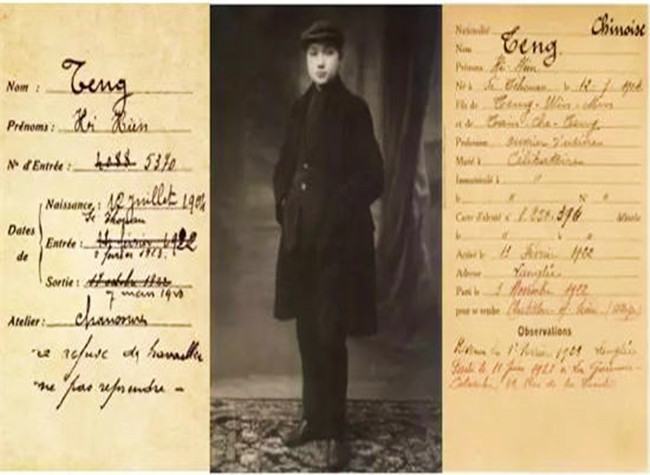 Nom : Teng
Prénoms : Hi Hien
N° d'Entrée : 4088 5370
Naissance : 12 juillet 1904
Se Thouan
Dates de
Entrée : 14 février 1922
2 février 1923
Sortie : 17 octobre 1922
7 mars 1923
Atelier : Chaussures
a refusé de travailler
ne pas reprendre -
Nationalité Chinoise
Nom Teng.
Prénoms Hi Hien
Né à Se Tchouan le 12-7 1904
Fils de Teng-Wen-Min
et de
Profession ouvrier d'usine
Marié à Célibataire
Immatriculé à "
le " " N° "
Carte d'identité n° 1.250.394 délivrée
le " à " "
Arrivé le 13 Février 1922
Adresse Langlée
Parti le 3 Novembre 1922
pour se rendre Chatillon s/ Seine
Observations
Revenu le 1er Février 1923 Langlée
Parti le 11 Juin 1923 à La Garenne-
Colombes, 39 Rue de la Pointe